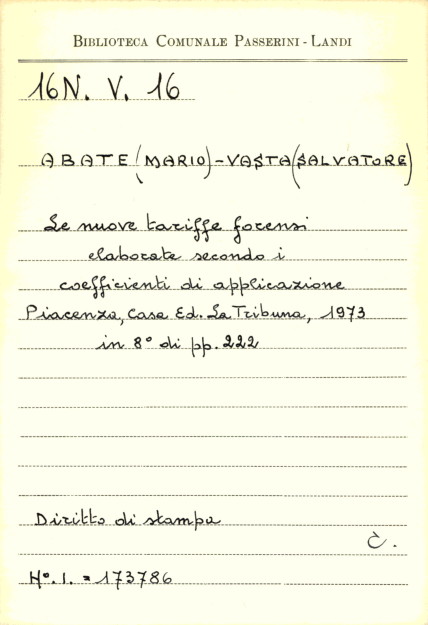 BIBLIOTECA COMUNALE PASSERINI - LANDI
16N. V. 16
ABATE (MARIO) - VASTA (SALVATORE)
Le nuove tariffe forensi
elaborate secondo i
coefficienti di applicazione
Piacenza, Casa Ed. La Tribuna, 1973
in 8° di pp. 222
Diritto di stampa
C.
N°. I. = 173786